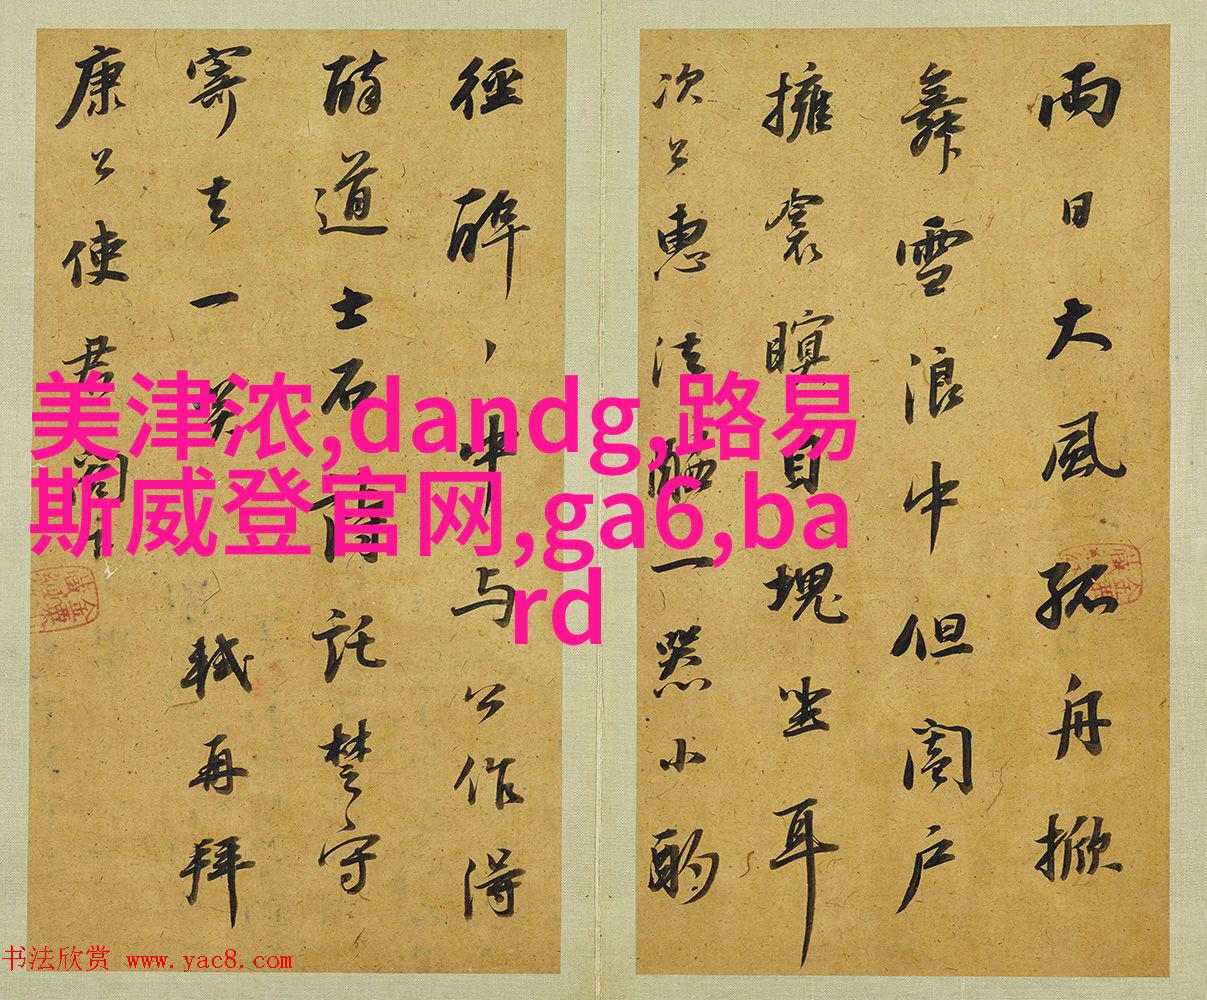 兩日大風孤舟掀
舞雪浪中但闔戶
擁衾瞑目塊坐耳
次公惠法醞一器小酌
徑醉、中与公作得
醉道士石詩託楚守
寄去一笑軾再拜
康公使君閣下
美津浓,dandg,路易
斯威登官网,ga6,ba
rd
书法欣赏 www.yac8.com